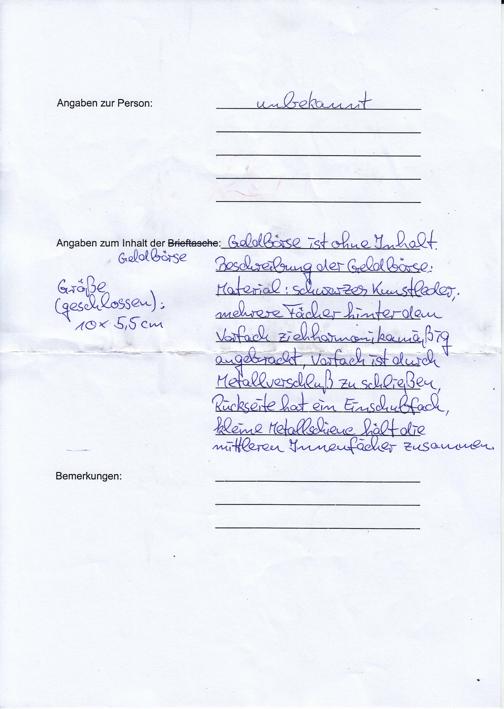 Angaben zur Person: unbekannt
Angaben zum Inhalt der Brieftasche: Geldbörse ist ohne Inhalt.
Geldbörse
Beschreibung der Geldbörse:
Größe
(geschlossen):
10 x 5,5 cm
Material: schwarzer Kunstleder.
mehrere Fächer hinter dem
Vorfach ziehharmonikamäßig
angebracht, Vorfach ist durch
Metallverschluß zu schließen,
Rückseite hat ein Einschubfach,
kleine Metallschiene hält die
mittleren Innenfächer zusammen.
Bemerkungen: